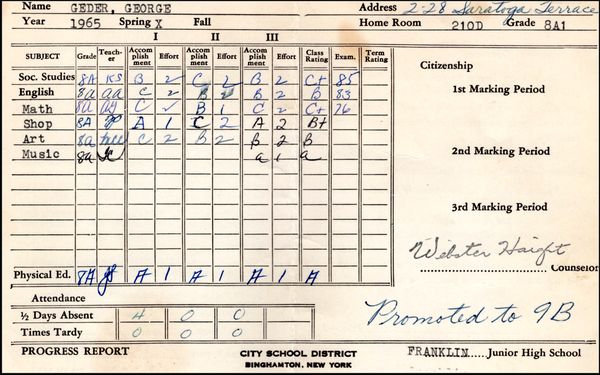 Name GEDER, GEORGE Address 2-28 Saratoga Terrace
Year 1965 Spring X Fall Home Room 210D Grade 8A1
I II III
SUBJECT Grade Teach-er Accomplishment Effort Accomplishment Effort Accomplishment Effort Class Rating Exam. Term Rating
Citizenship
Soc. Studies 8A KS B 2 C 2 B 2 C+ 85
1st Marking Period
English 8a aa C 2 B B 2 B 83
Math 8A C B 1 C 2 C+ 76
Shop 8A A 1 C 2 A 2 B+
Art 8a C 2 B 2 B 2 B
2nd Marking Period
Music 8a a 1 a
3rd Marking Period
Webster Haight
Counselor
Physical Ed. 8A A 1 A 1 A 1 A
Attendance
½ Days Absent 4 0 0
Times Tardy 0 0 0
Promoted to 9B
PROGRESS REPORT CITY SCHOOL DISTRICT FRANKLIN Junior High School
BINGHAMTON, NEW YORK